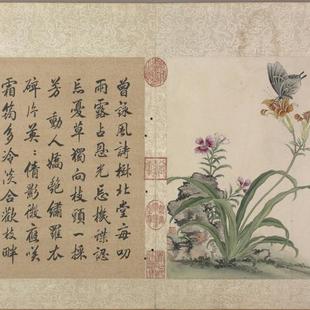 曾詠風詩樹北堂每叨
雨露占恩光忘機謾認
忘憂草獨向枝頭一採
芳動人嬌艷繡羅衣
碎片英英倩影微應笑
霜筠多冷淡合歡枝畔